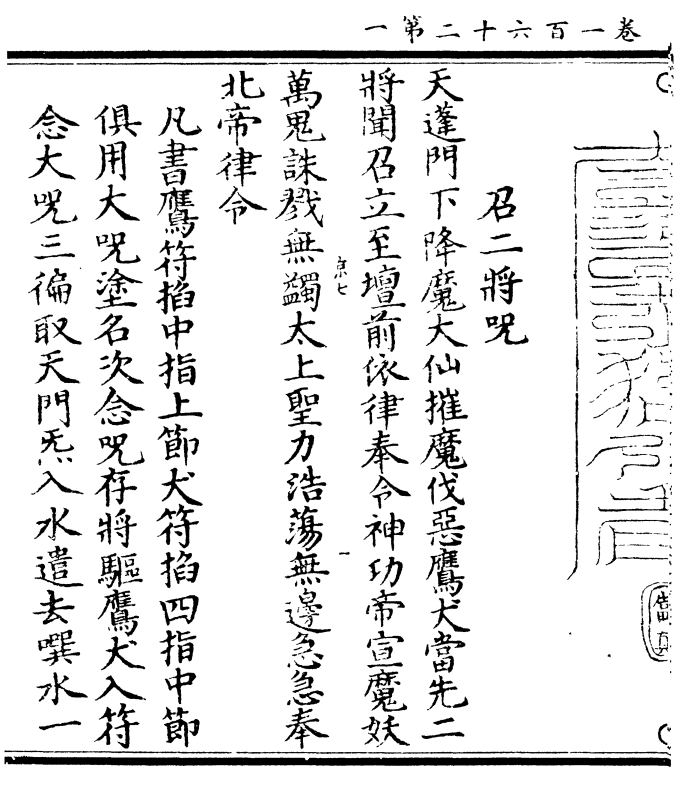 卷一百六十二第一
召二將咒
天蓬門下降魔大仙摧魔伐惡鷹犬當先二
將聞召立至壇前依律奉令神功帝宣魔妖
京七
一
萬鬼誅戮無蠲太上聖力浩蕩無邊急急奉
北帝律令
凡書鷹符掐中指上節犬符掐四指中節
俱用大咒塗名次念咒存將驅鷹犬入符
念大咒三徧取天門炁入水遣去噀水一